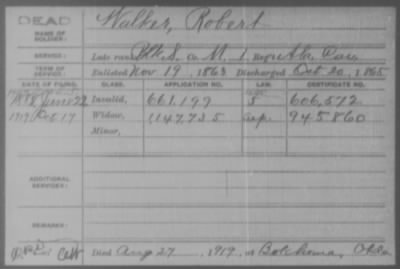 DEAD
Walker, Robert
NAME OF SOLDIER:
SERVICE: Late rank Pvt., Co. M, 1 Reg't Ala. Cav.
TERM OF SERVICE: Enlisted Nov 19, 1863 Discharged Oct 20, 1865
DATE OF FILING. CLASS. APPLICATION NO. LAW. CERTIFICATE NO.
1888 June 22 Invalid, 661,197 606,572
1919 Widow, 1147,735 945860
Minor,
ADDITIONAL SERVICES:
REMARKS:
Died Aug 27, 1919, at Okla